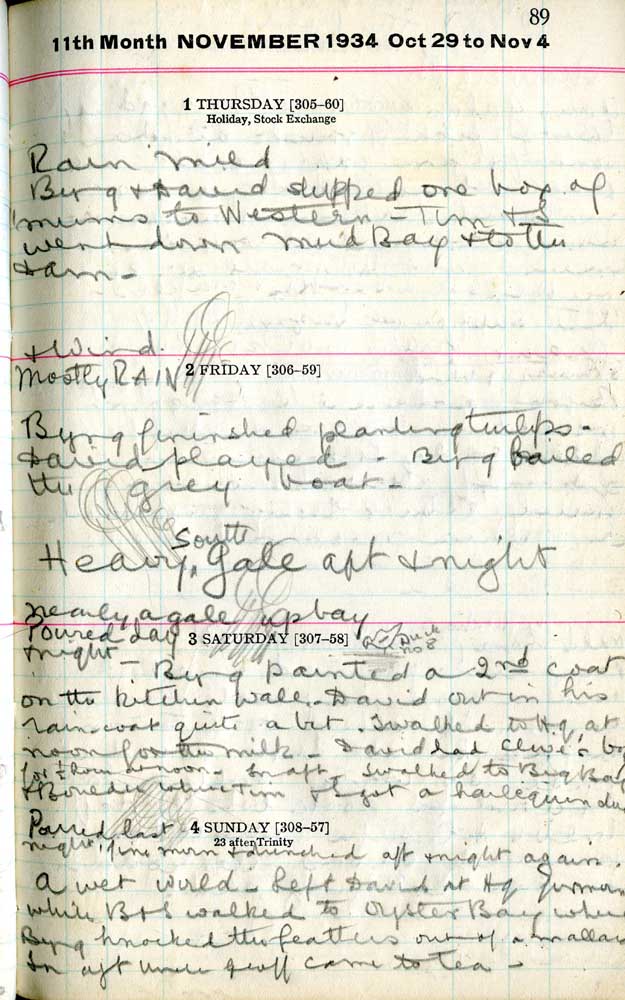 89
11th Month NOVEMBER 1934 Oct 29 to Nov 4
1 THURSDAY [305–60]
Holiday, Stock Exchange
Rain mild
Byng & David shipped one box of
'mums to Western – Tim & I
went down Mud Bay & to the
dam –
& Wind.
Mostly RAIN
2 FRIDAY [306–59]
Byng finished planting tulips –
David played – Byng bailed
the grey boat –
South
Heavy, gale aft & night
nearly a gale up bay
Poured day
& night –
3 SATURDAY [307–58]
Duck
no 8
Byng painted a 2nd coat
on the kitchen wall. David out in his
rain-coat quite a bit. I walked to Hq at
noon for the milk – David had Clive's
for ½ hour at noon. In aft – I walked to Big Bay
& where Tim & I got a harlequin
Poured last
night, fine morn & drenched aft & night again.
4 SUNDAY [308–57]
23 after Trinity
A wet world – Left David at Hq for morn
while B & I walked to Oyster Bay
Byng knocked the feathers out of a
In aft Geoff came to tea –